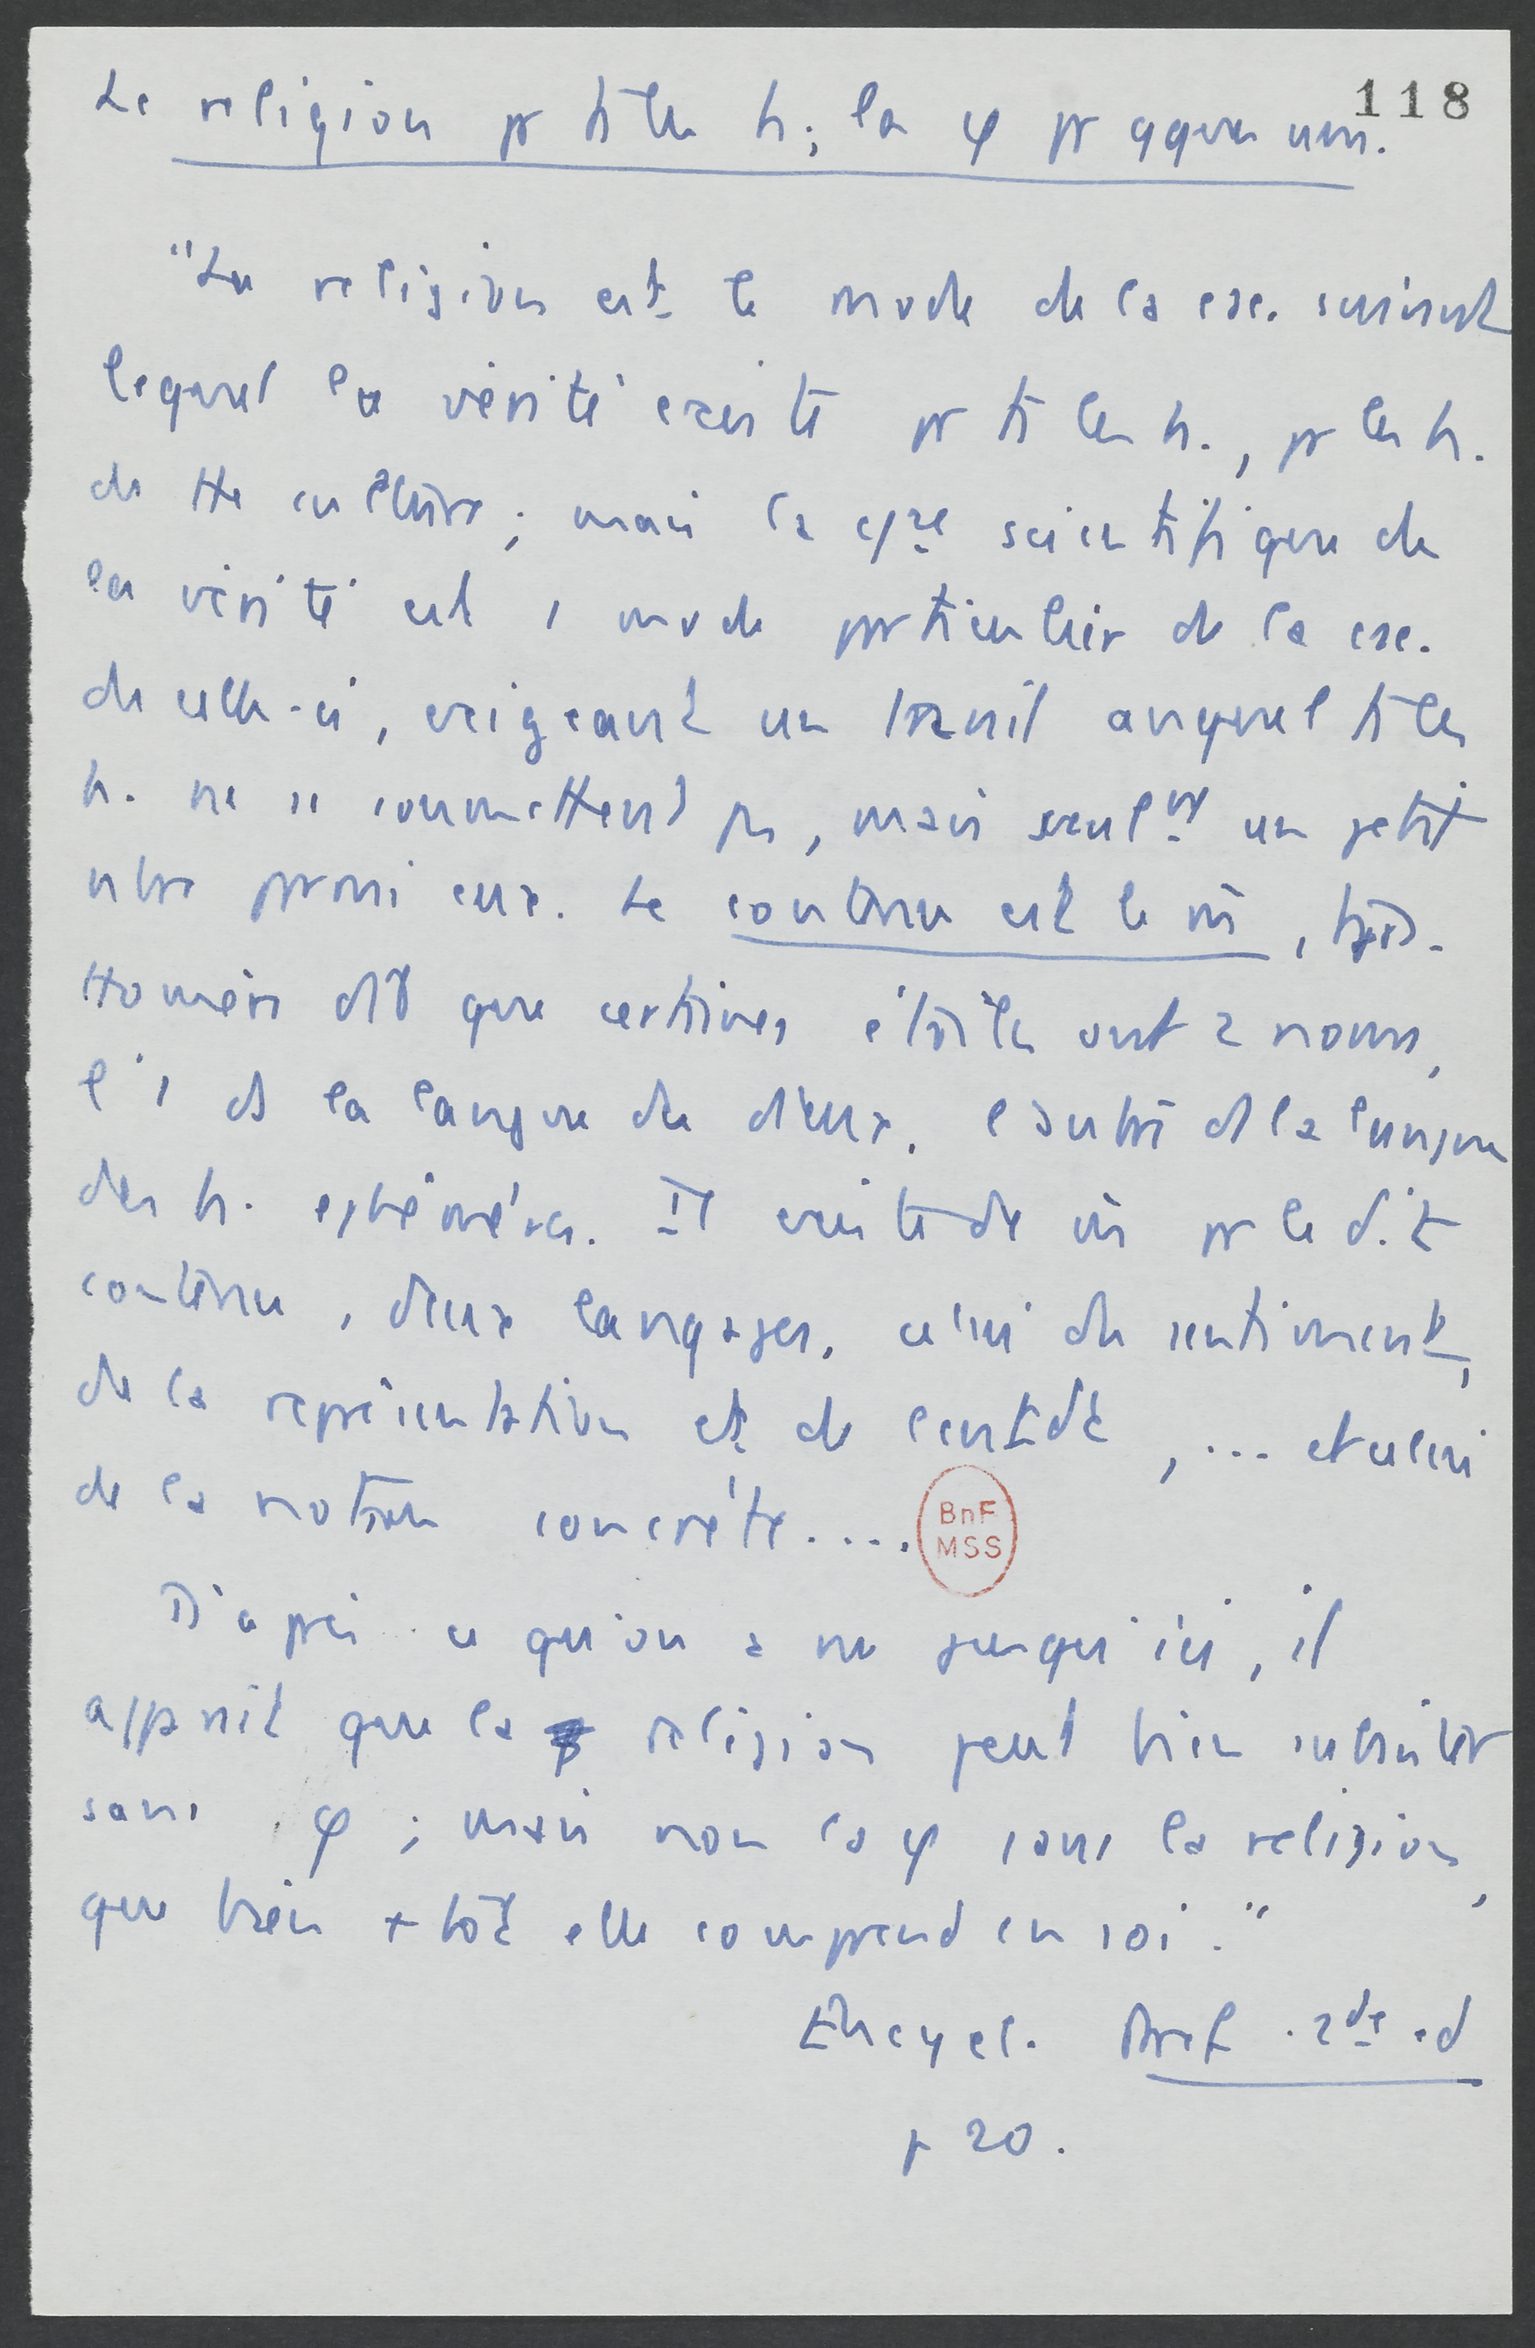 118
La religion pr ts les h ; la φ pr qques uns.
"La religion est le mode de la csc. suivant
lequel la vérité existe pr ts les h., pr les h.
de tte culture ; mais la c/ce scientifique de
la vérité est 1 mode particulier de la csc.
de celle-ci, exigeant un travail auquel ts les
h. ne se soumettent pas, mais seulnt un petit
nbre parmi eux. Le contenu est le m̂,
Homère dit que certaines étoiles ont 2 noms,
l'1 ds la langue des dieux, l'autre ds la langue
des h. éphémères. Il existe de m̂ pr le dit
contenu, deux langages, celui du sentiment,
de la représentation et de l'entdt, ... et celui
de la notion concrète....
BnF
MSS
D'après ce qu'on a vu jusqu'ici, il
apparait que la religion peut bien subsister
sans φ ; mais non la φ sans la religion,
que bien + tôt elle comprend en soi."
Encycl. Pref. 2de ed
p 20.